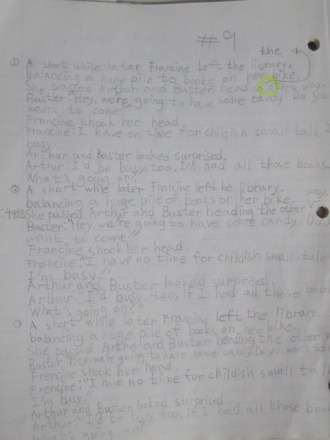 #9
the
① A short while later Francine left the library,
balancing a huge pile to books on her bike.
She passed Arthur and Buster
Buster: Hey, were going to have some candy. Do yo
want to come.
Francine shook her head.
Francine: I have on time for childish small talk
busy
Arthur and Buster looked surprised.
Arthur: I'd be busy, too, if I had all those book
What's going on"
② A short while later Francine left the library.
balancing a huge pile of books on her bike.
She passed Arthur and Buster heading the other
Buster: "Hey, we're going to have some candy.
want to come"
Francine shook her head.
Francine: "I have no time for childish small tale
I'm busy."
Arthur and Buster looked surprised.
Arthur: "I'd busy, too, if I had all those boo
What's going on"
A short while later Francine left the library
balancing a huge pile of books, on her bike.
She passed Arthur and Buster heading the other w
Buster:
Francine shook her head
Francine: "I have no time for childish small to
I'm busy.
Arthur and Buster looked surprised.
Arthur: "I'd busy, too, if I had all those boo
What's going on